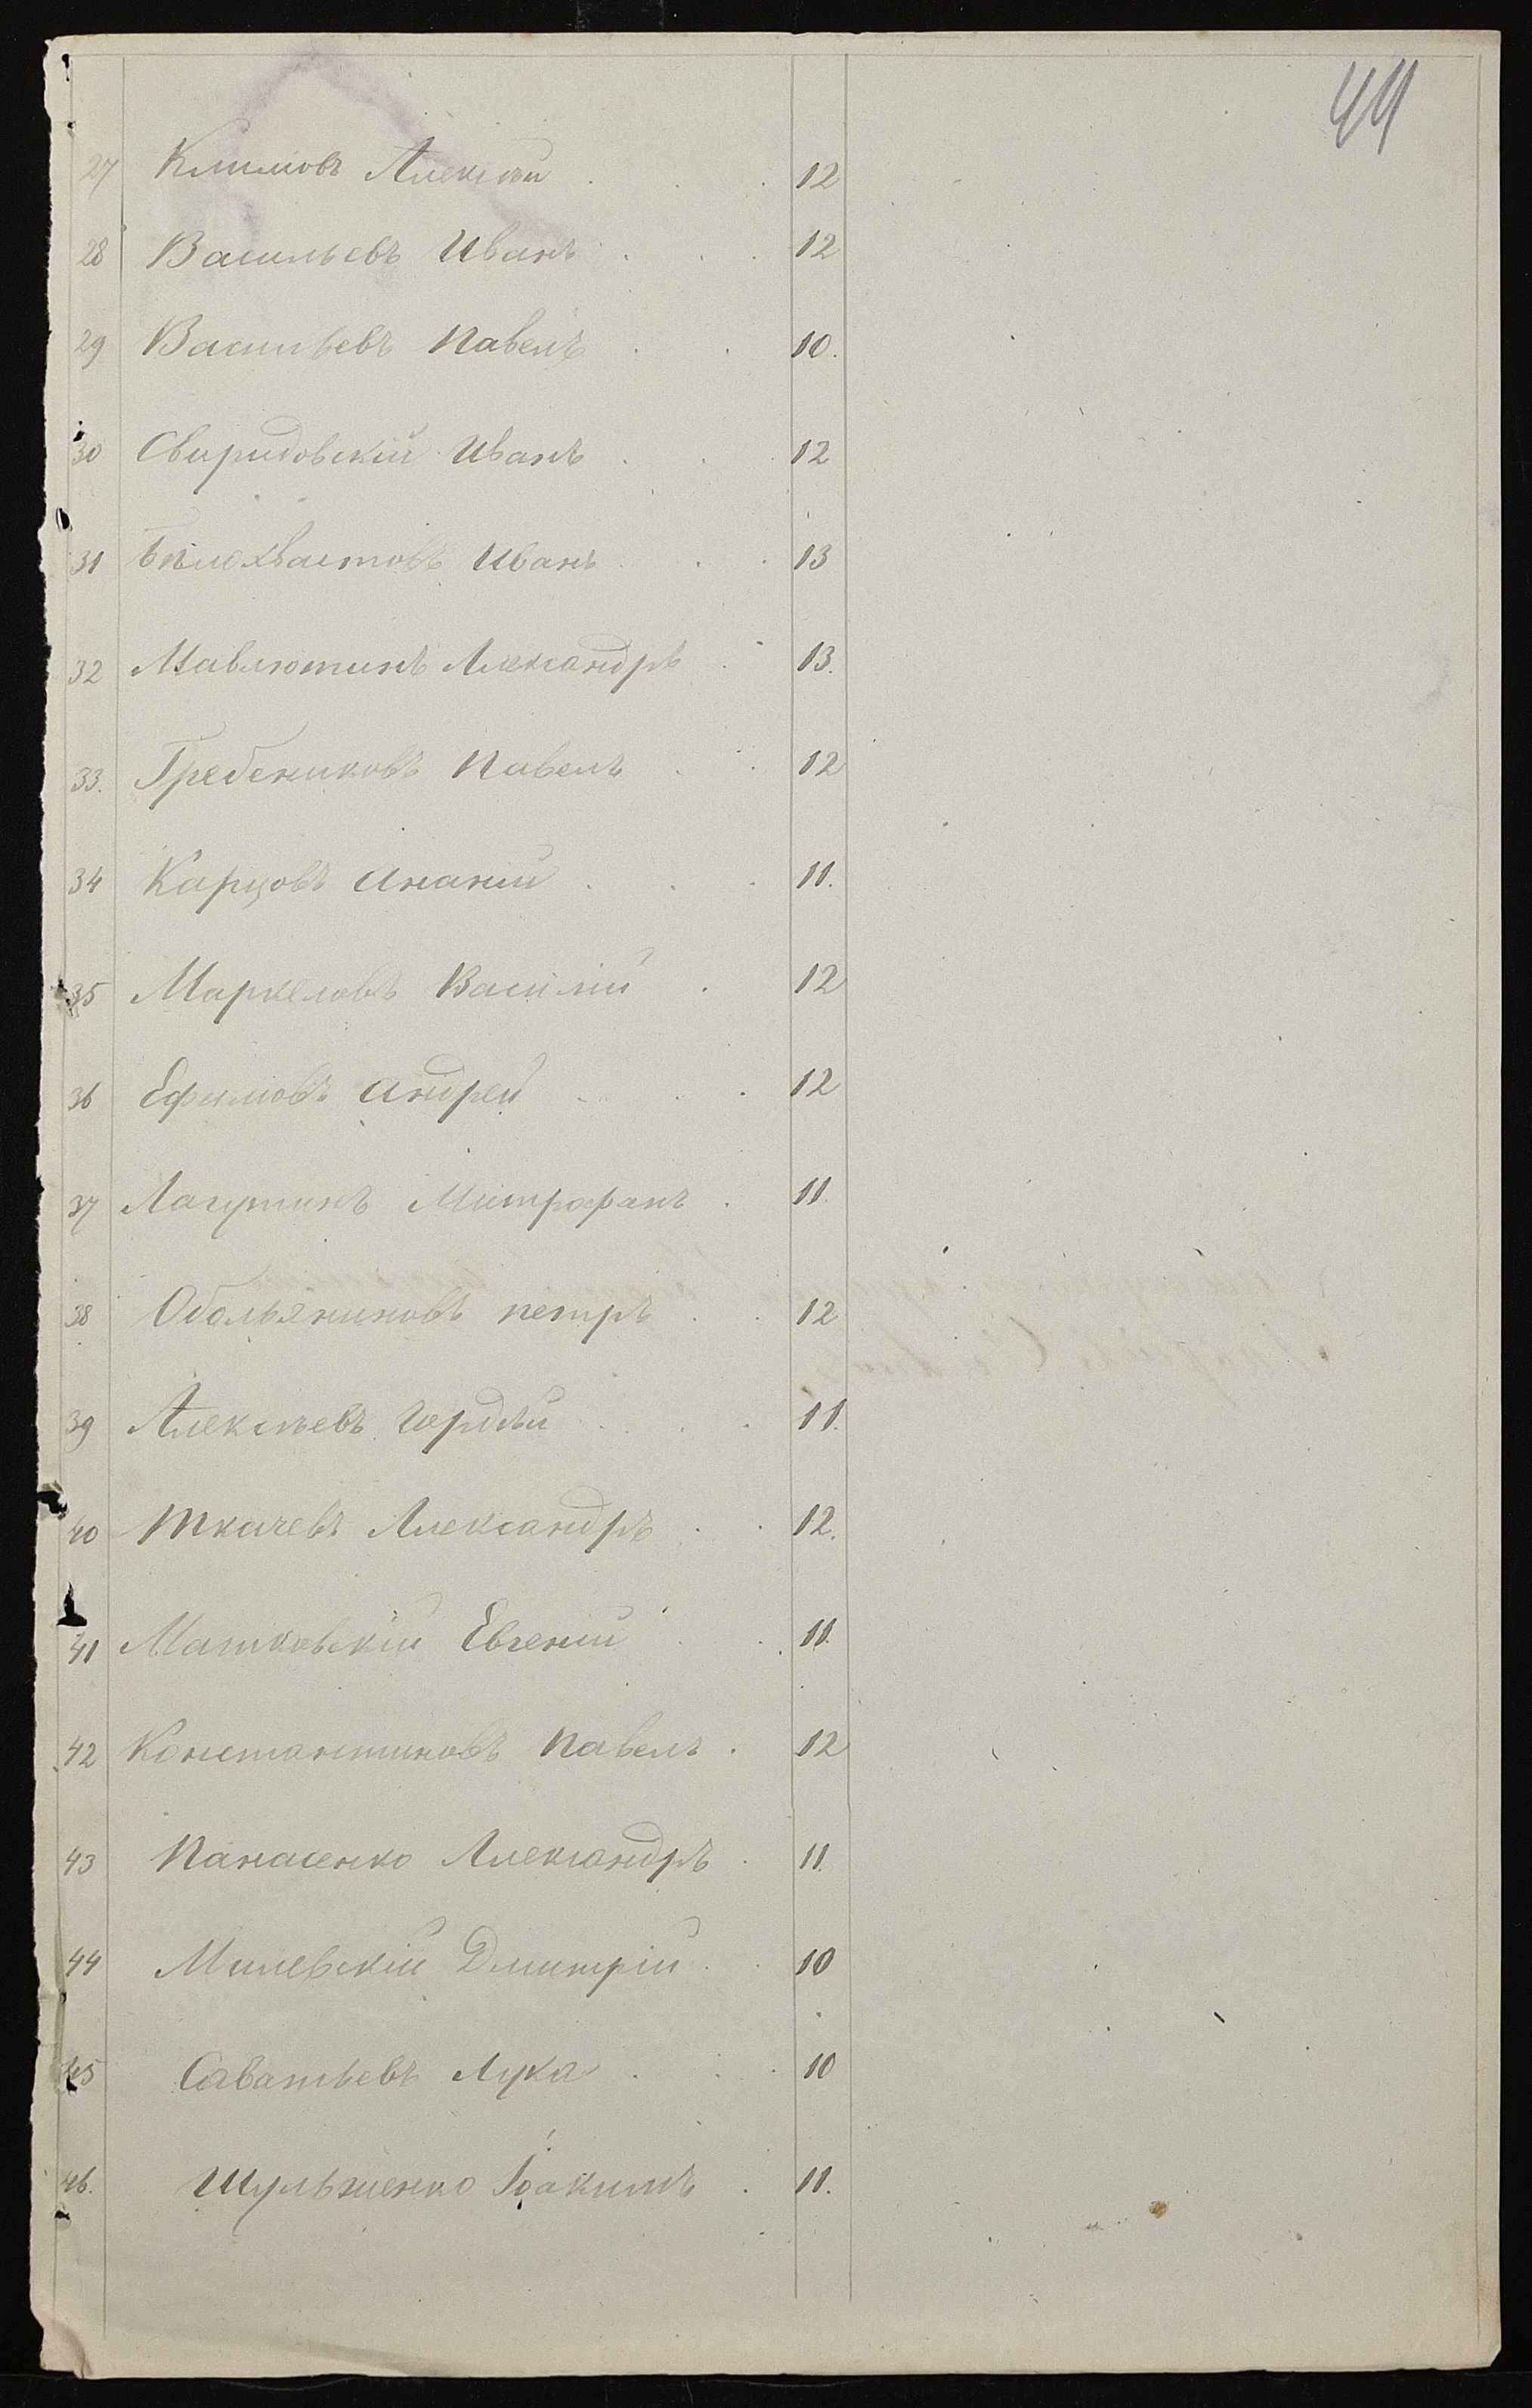 44
27 Климовъ Алексѣй . . 12
28 Васильевъ Иванъ . . . 12
29 Васильевъ Павелъ . . 10.
30 Свиридовскій Иванъ . . . 12
31 Бѣлохвастовъ Иванъ . . . 13
32 Мавлютинъ Александръ . 13.
33. Гребениковъ Павелъ . . 12
34 Карцовъ Ананій . . . 11.
35 Маркеловъ Василій . 12
36 Ефимовъ Андрей . . . 12
37 Лагутинъ Митрофанъ . 11.
38 Обольяниновъ Петръ . . 12
39 Алексѣевъ . . . 11.
40 Ткачевъ Александръ . . 12.
41 Матковскій Евгений . . 11.
42 Константиновъ Павелъ . 12
43 Панасенко Александръ . 11.
44 Милевскій Дмитрій . . 10
45 Саватьевъ Лука . . . 10
46. Іоакимъ . 11.